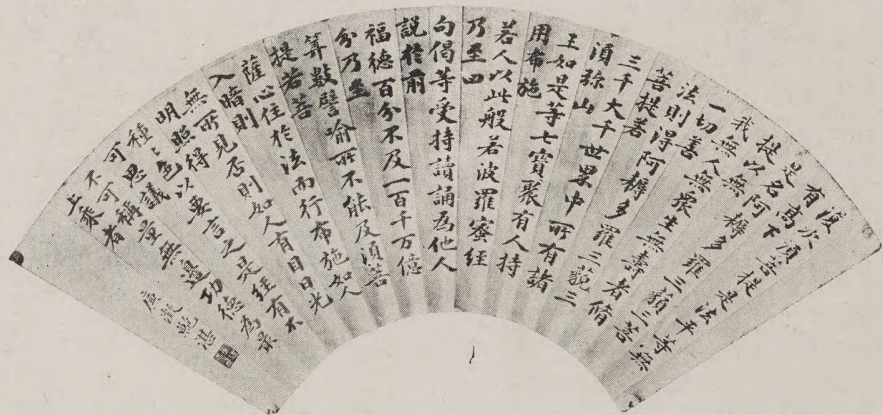 復次須菩提是法平等無
有高下
是名阿耨多羅三藐三菩
提以無
我無人無衆生無壽者脩
一切善
法則得阿耨多羅三藐三
菩提若
三千大千世界中所有諸
須弥山
王如是等七寶聚有人持
用布施
若人以此般若波羅蜜經
乃至四
句偈等受持讀誦為他人
說於前
福德百分不及一百千万億
分乃至
算數譬喻所不能及須菩
提若菩
薩心住於法而行布施如人
入暗則
無所見否則如人有目日光
明照得
種種色以要言之是經有不
可思議
不可稱量無邊功德為最
上乘者